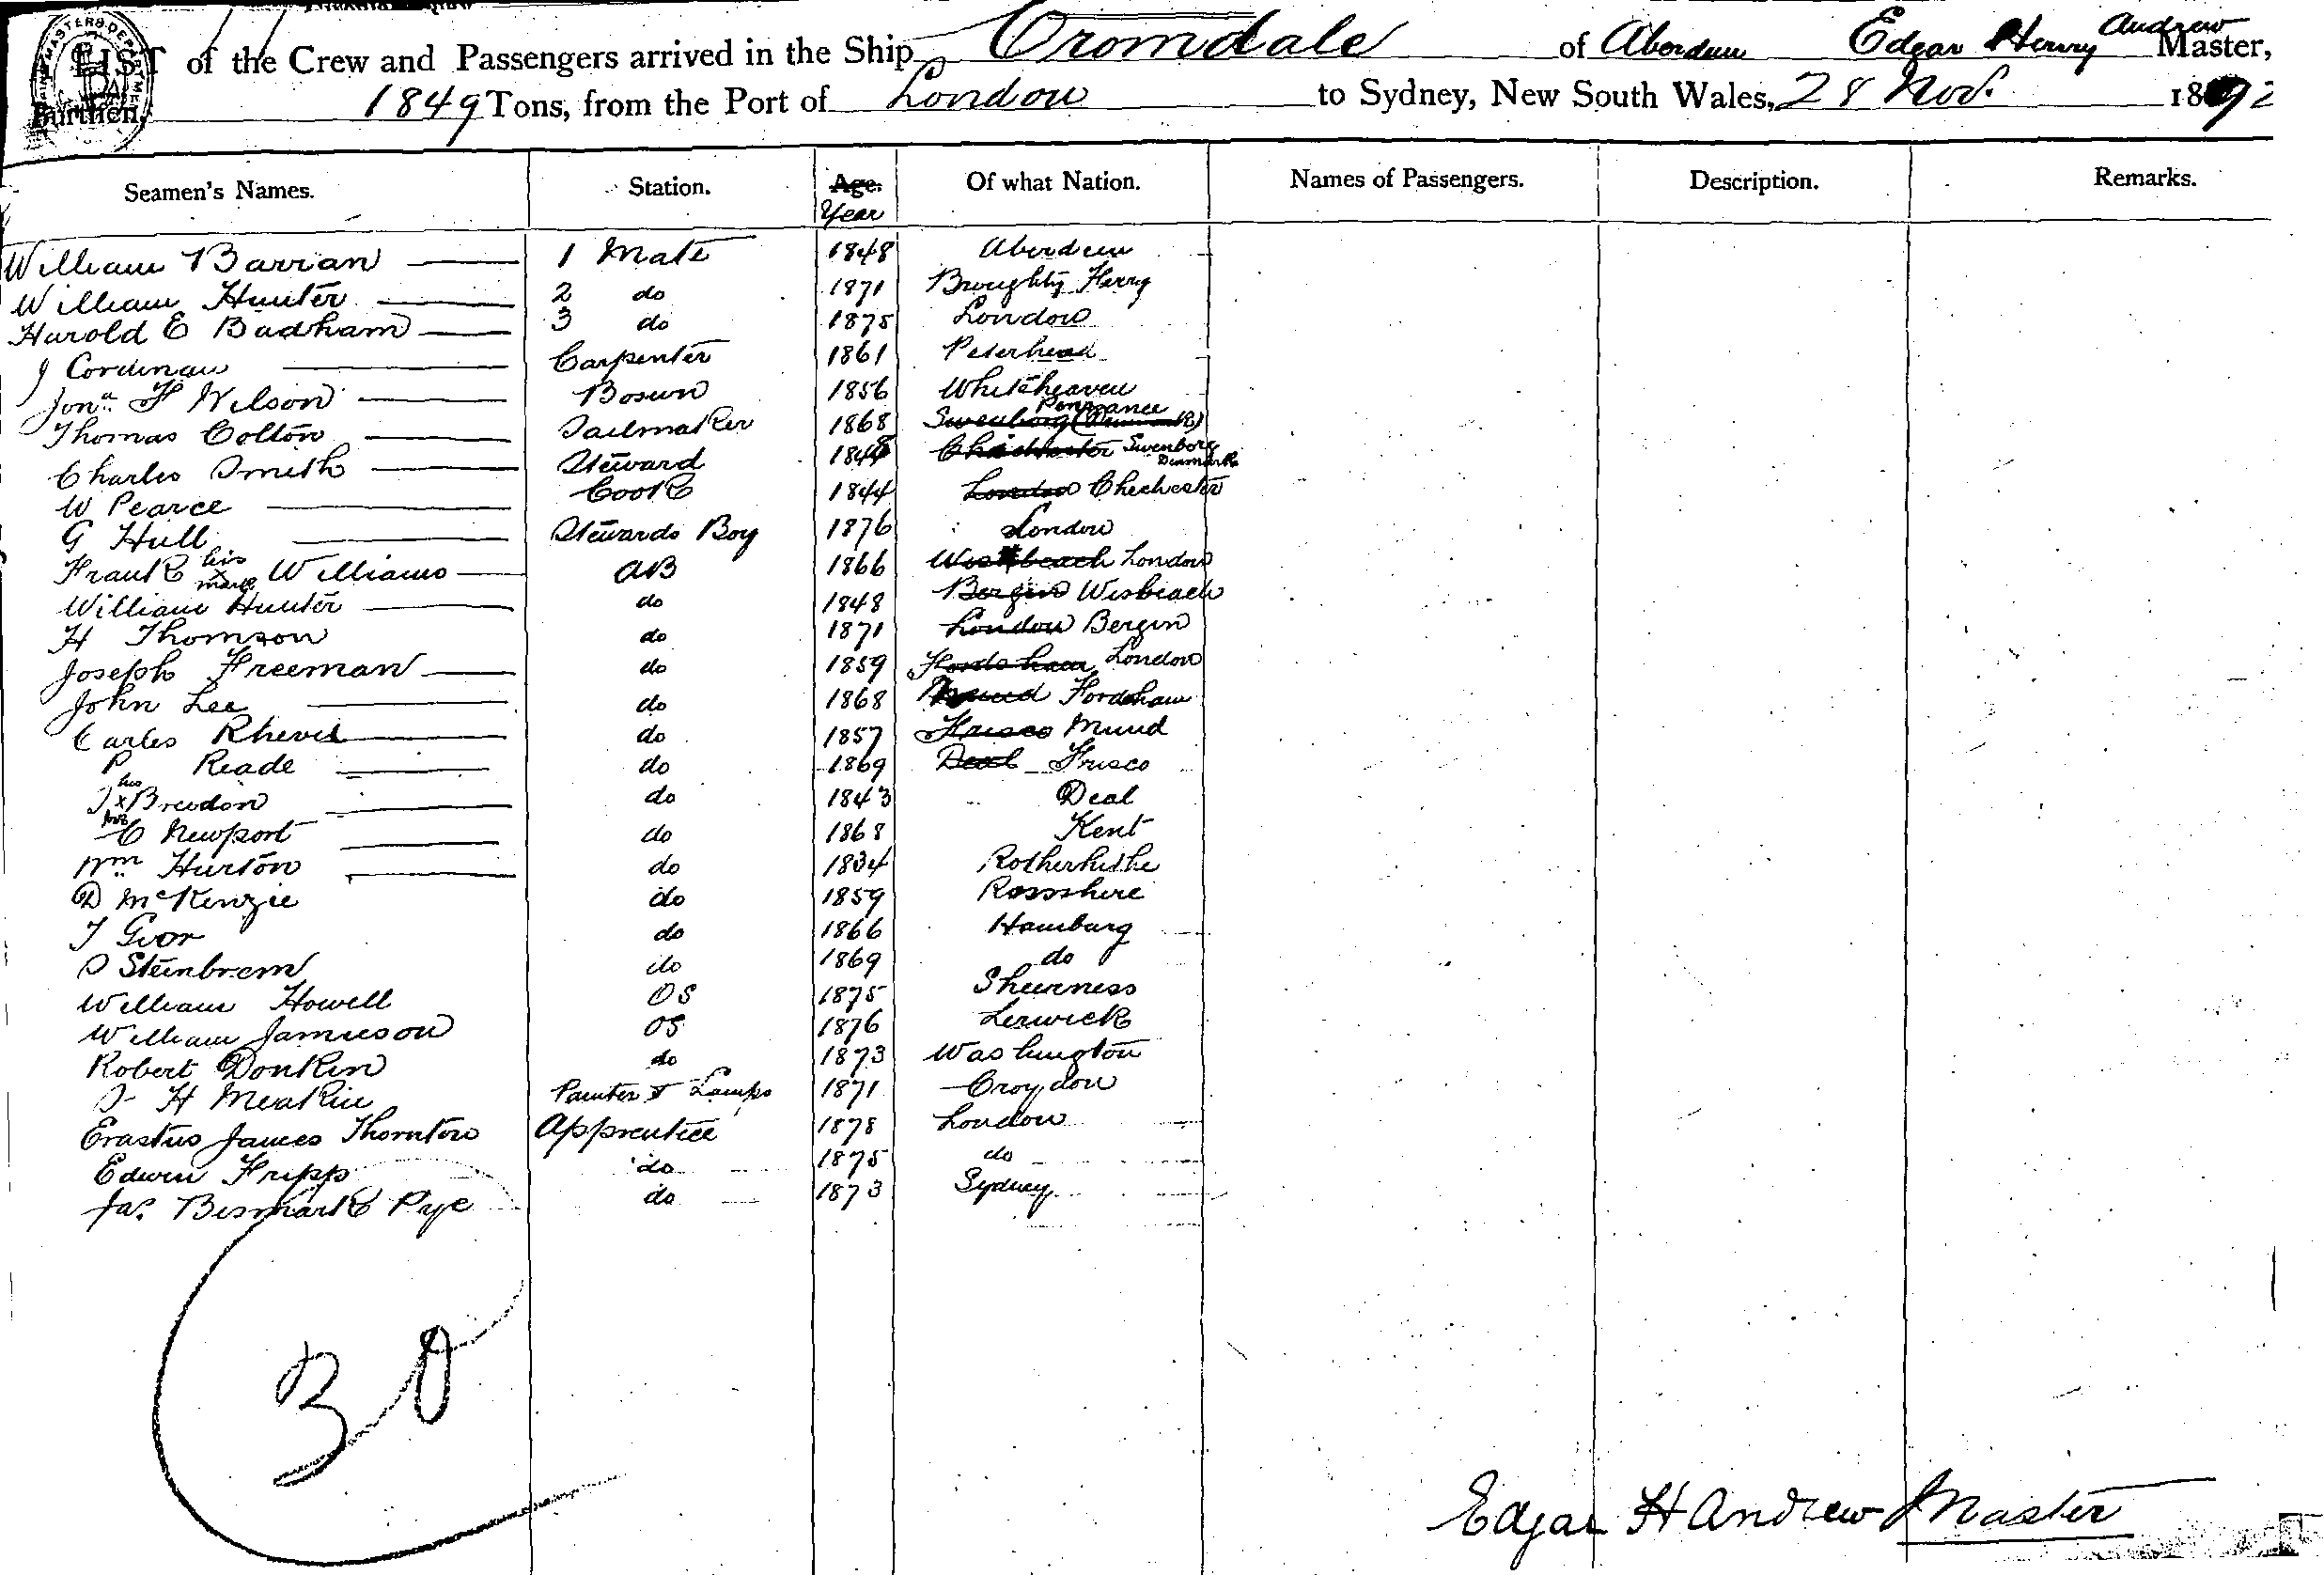 LIST of the Crew and Passengers arrived in the Ship Cromdale of Aberdeen Edgar Henry Andrew Master,
Burthen, 1849 Tons, from the Port of London to Sydney, New South Wales, 28 Nov. 1892
Seamen's Names. Station. Age. Year Of what Nation. Names of Passengers. Description. Remarks.
William Barran 1 Mate 1848 Aberdeen
William Hunter 2 do 1871 Broughty Ferry
Harold E Badham 3 do 1875 London
J Cordinau Carpenter 1861 Peterhead
Jona. F Wilson Bosun 1856 Whitehaven
Thomas Colton Sailmaker 1868 Swenborg (Denmark) Penzance
Charles Smith Steward 1848 Chichester Swenborg Denmark
W Pearce Cook 1844 London Chechester
G Hull Stewards Boy 1876 London
Frank his x mark Williams AB 1866 Wisbeach London
William Hunter do 1848 Bergin Wisbeach
H Thomson do 1871 London Bergin
Joseph Freeman do 1859 Fordsham London
John Lee do 1868 Mund Fordshaw
Carles Rheves do 1857 Frisco Mund
P Reade do 1869 Deal Frisco
J his x Breedon do 1843 Deal
C Newport do 1868 Kent
Wm. Hurton do 1834 Rotherhithe
D McKenzie do 1859 Rossshire
J Gvor do 1866 Hamburg
O Steinbrem do 1869 do
William Howell OS 1875 Sheerness
William Jamieson OS 1876 Lerwick
Robert Donkin do 1873 Washington
J H Meakin Painter & Lamps 1871 Croydon
Erastus James Thornton Apprentice 1878 London
Edwin Fripp do 1875 do
Jas. Bismark Pye do 1873 Sydney
30
Edgar H Andrew Master